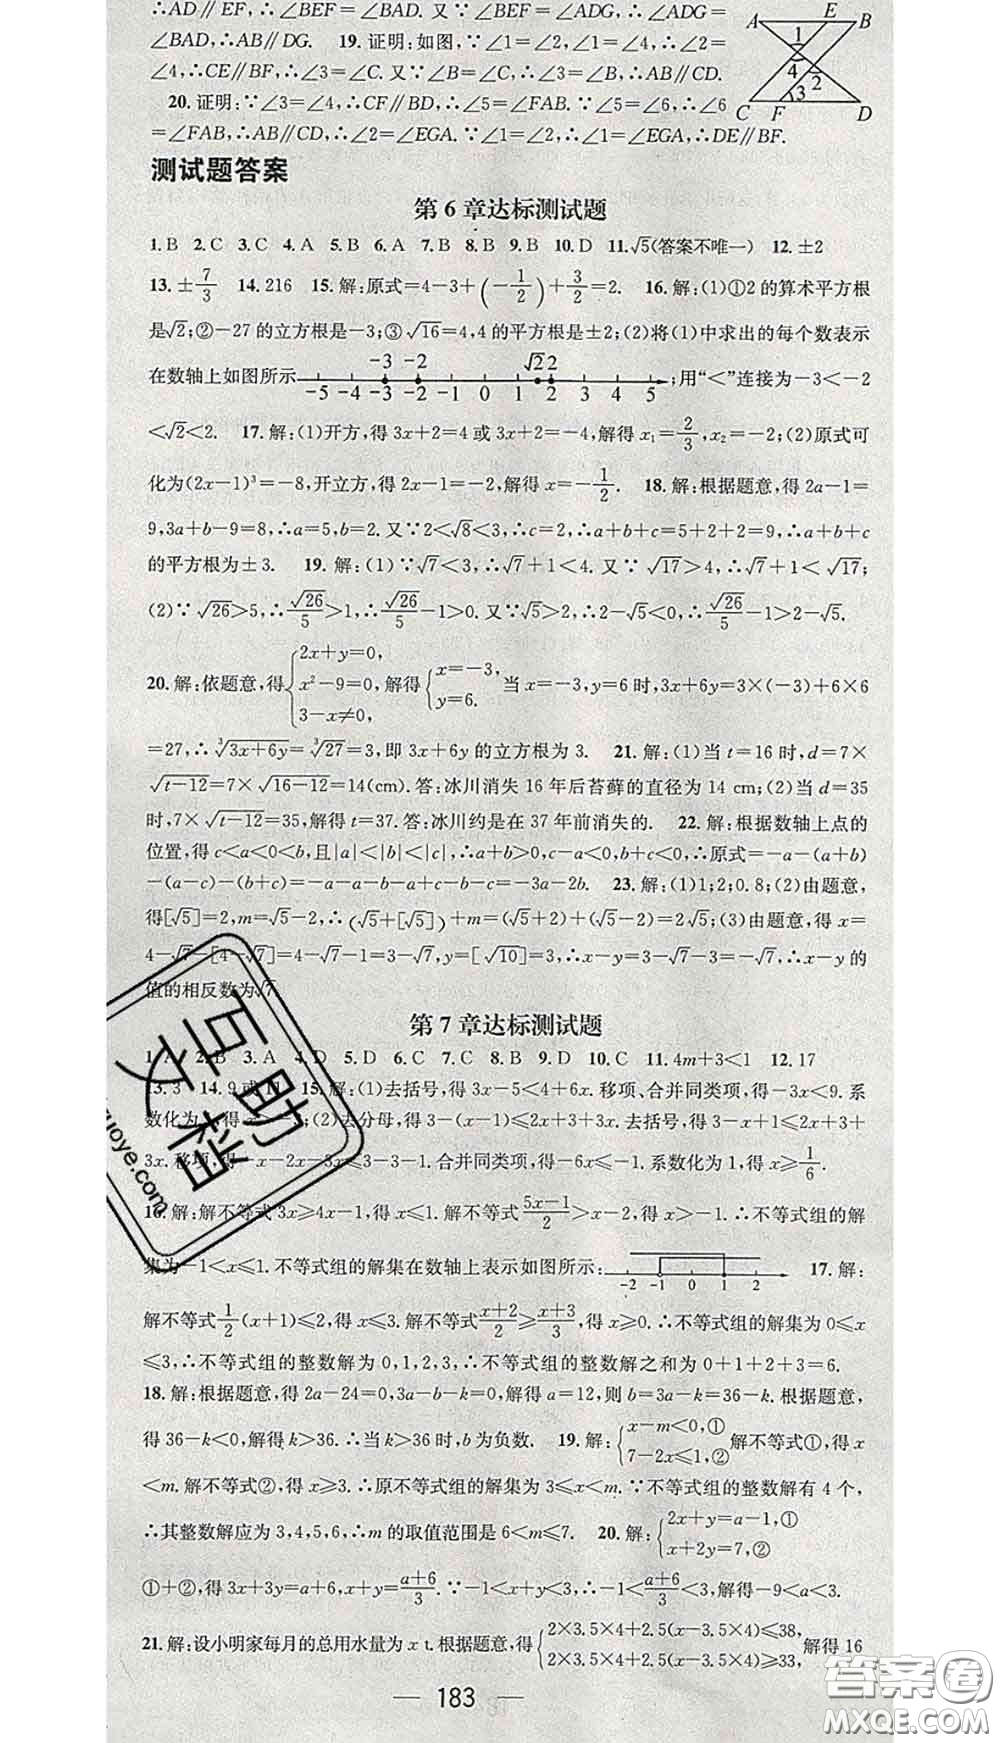 ∴AD∥EF,∴∠BEF=∠BAD.又∵∠BEF=∠ADG,∴∠ADG=
∠BAD,∴AB∥DG. 19.证明:如图,∵∠1=∠2,∠1=∠4,∴∠2=
∠4,∴CE∥BF,∴∠3=∠C.又∵∠B=∠C,∴∠3=∠B,∴AB∥CD.
20.证明:∵∠3=∠4,∴CF∥BD,∴∠5=∠FAB.∵∠5=∠6,∴∠6
=∠FAB,∴AB∥CD,∴∠2=∠EGA.∵∠1=∠2,∴∠1=∠EGA,∴DE∥BF.
A E B 1 4 2 3 C F D
测试题答案
第6章达标测试题
1.B 2.C 3.C 4.A 5.B 6.A 7.B 8.B 9.B 10.D 11.√5(答案不唯一) 12.±2
13.±7/3 14.216 15.解:原式=4-3+(-1/2)+3/2=2. 16.解:(1)①2的算术平方根
是√2;②-27的立方根是-3;③√16=4,4的平方根是±2;(2)将(1)中求出的每个数表示
在数轴上如图所示 -3 -2 √2 2 -5 -4 -3 -2 -1 0 1 2 3 4 5 ;用“<”连接为-3<-2
<√2<2. 17.解:(1)开方,得3x+2=4或3x+2=-4,解得x₁=2/3,x₂=-2;(2)原式可
化为(2x-1)³=-8,开立方,得2x-1=-2,解得x=-1/2. 18.解:根据题意,得2a-1=
9,3a+b-9=8,∴a=5,b=2.又∵2<√8<3,∴c=2,∴a+b+c=5+2+2=9,∴a+b+c
的平方根为±3. 19.解:(1)∵√7<3,∴√7+1<4.又∵√17>4,∴√7+1<√17;
(2)∵√26>5,∴√26/5>1,∴√26/5-1>0.又∵√5>2,∴2-√5<0,∴√26/5-1>2-√5.
20.解:依题意,得{2x+y=0, x²-9=0, 3-x≠0, 解得{x=-3, y=6. 当x=-3,y=6时,3x+6y=3×(-3)+6×6
=27,∴³√3x+6y=³√27=3,即3x+6y的立方根为3. 21.解:(1)当t=16时,d=7×
√t-12=7×√16-12=14(cm).答:冰川消失16年后苔藓的直径为14 cm;(2)当d=35
时,7×√t-12=35,解得t=37.答:冰川约是在37年前消失的. 22.解:根据数轴上点的
位置,得c<a<0<b,且|a|<|b|<|c|,∴a+b>0,c-a<0,b+c<0,∴原式=-a-(a+b)
-(a-c)-(b+c)=-a-a-b-a+c-b-c=-3a-2b. 23.解:(1)1;2;0.8;(2)由题意,
得[√5]=2,m=√5-2,∴(√5+[√5])+m=(√5+2)+(√5-2)=2√5;(3)由题意,得x=
4-√7-[4-√7]=4-√7-1=3-√7,y=[√10]=3,∴x-y=3-√7-3=-√7,∴x-y的
值的相反数为√7.
第7章达标测试题
1.A 2.B 3.A 4.D 5.D 6.C 7.C 8.B 9.D 10.C 11.4m+3<1 12.17
13.3 14.9或11 15.解:(1)去括号,得3x-5<4+6x.移项、合并同类项,得-3x<9.系
数化为1,得x>-3;(2)去分母,得3-(x-1)≤2x+3+3x.去括号,得3-x+1≤2x+3+
3x.移项,得-x-2x-3x≤3-3-1.合并同类项,得-6x≤-1.系数化为1,得x≥1/6.
16.解:解不等式3x≥4x-1,得x≤1.解不等式5x-1/2>x-2,得x>-1.∴不等式组的解
集为-1<x≤1.不等式组的解集在数轴上表示如图所示: -2 -1 0 1 2 17.解:
解不等式1/2(x+1)≤2,得x≤3.解不等式x+2/2≥x+3/3,得x≥0.∴不等式组的解集为0≤x
≤3,∴不等式组的整数解为0,1,2,3,∴不等式组的整数解之和为0+1+2+3=6.
18.解:根据题意,得2a-24=0,3a-b-k=0,解得a=12,则b=3a-k=36-k.根据题意,
得36-k<0,解得k>36.∴当k>36时,b为负数. 19.解:{x-m<0,① 7-2x≤1,② 解不等式①,得x
<m.解不等式②,得x≥3.∴原不等式组的解集为3≤x<m.∵不等式组的整数解有4个,
∴其整数解应为3,4,5,6,∴m的取值范围是6<m≤7. 20.解:{2x+y=a-1,① x+2y=7,②
①+②,得3x+3y=a+6,x+y=a+6/3.∵-1<x+y<3,∴-1<a+6/3<3,解得-9<a<3.
21.解:设小明家每月的总用水量为x t.根据题意,得{2×3.5×4+2.5(x-3.5×4)≤38, 2×3.5×4+2.5(x-3.5×4)≥33, 解得16
183
互助文档
zuoye.com
答案圈
MXQE.COM